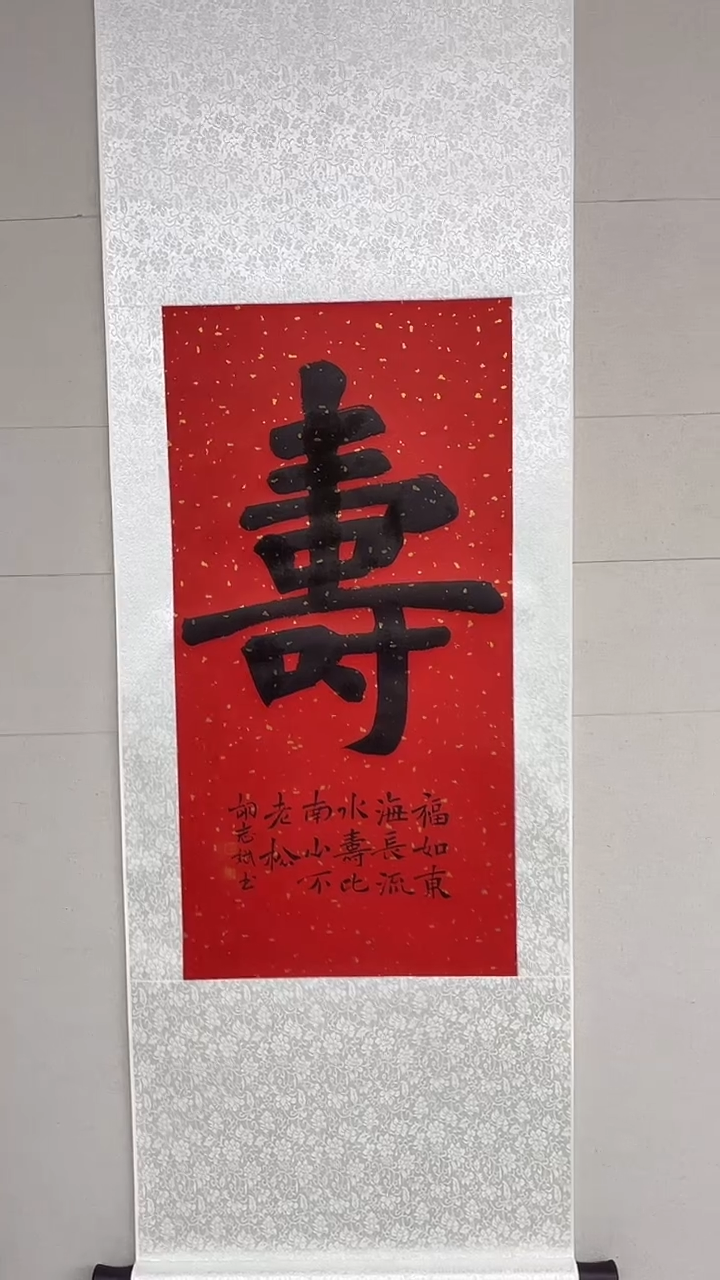 壽
福如東
海長流
水壽比
南山不
老松
胡志 书